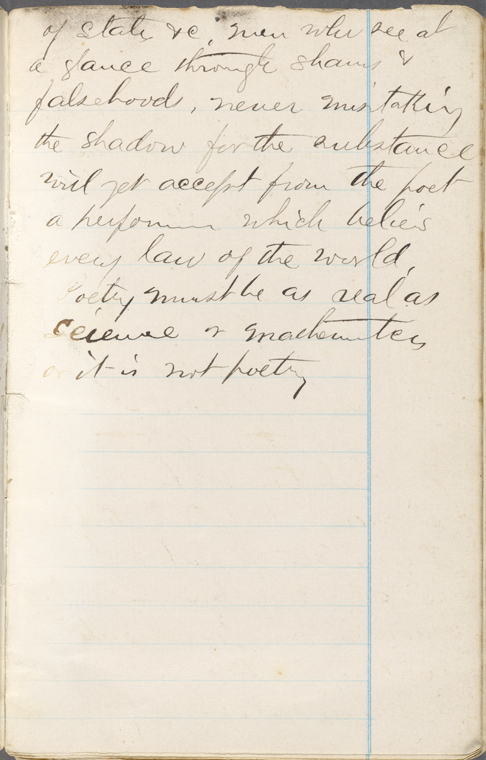 of state, &c, men who see at
a glance through shams &
falsehoods, never mistaking
the shadow for the substance
will yet accept from the poet
a performan which belies
every law of the world.
Poetry must be as real as
science & mathematics
or it is not poetry